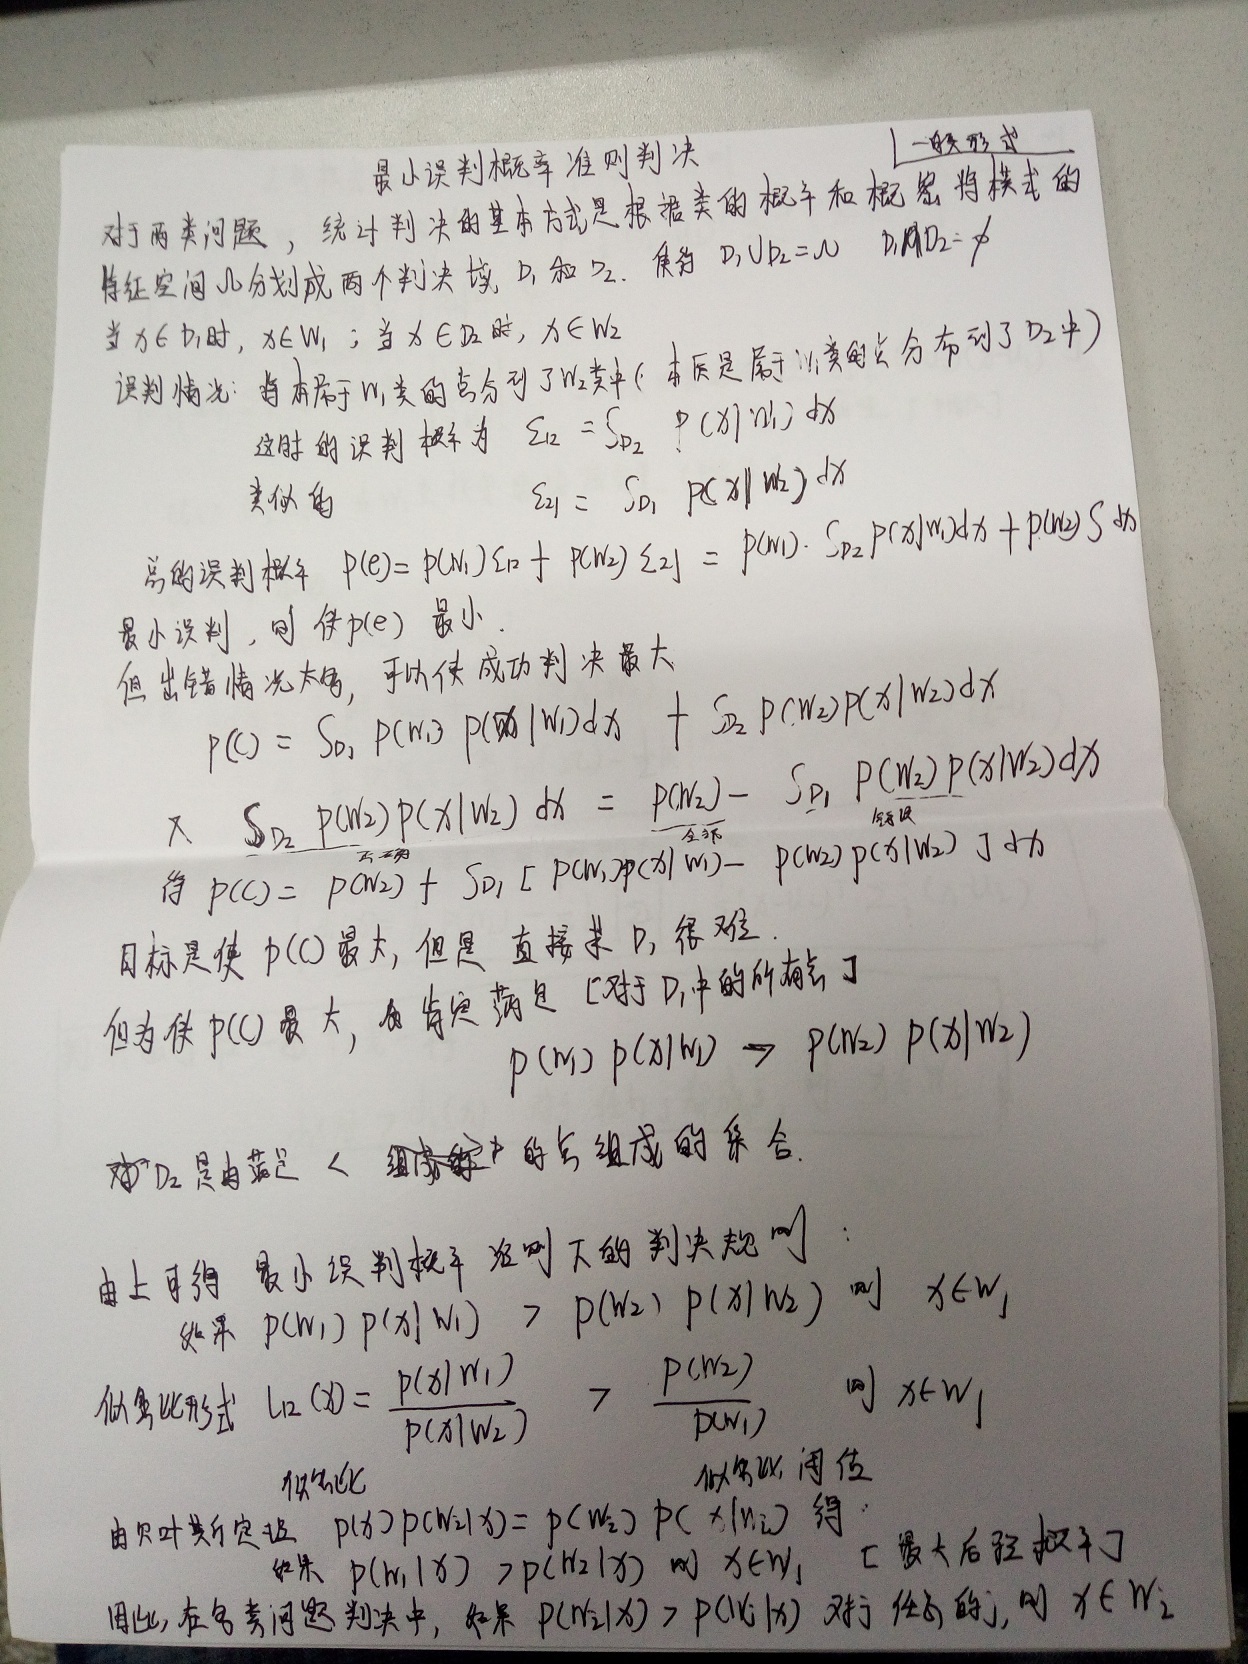 最小误判概率准则判决
一般形式
对于两类问题，统计判决的基本方式是根据类的概率和概密将模式的
特征空间Ω分划成两个判决域 D₁ 和 D₂. 使得 D₁∪D₂=Ω D₁∩D₂=φ
当 x∈D₁时, x∈W₁ ; 当 x∈D₂时, x∈W₂
误判情况: 将本属于W₁类的点分到了W₂类中( 本质是属于W₁类的点分布到了D₂中)
这时的误判概率为 ε₁₂ = ∫D₂ P(x|W₁) dx
类似的 ε₂₁ = ∫D₁ P(x|W₂) dx
总的误判概率 P(e)= P(W₁)ε₁₂ + P(W₂)ε₂₁ = P(W₁)·∫D₂ P(x|W₁)dx + P(W₂)∫ dx
最小误判, 则使P(e) 最小.
但出错情况太多, 可以使成功判决最大
P(C) = ∫D₁ P(W₁) P(x|W₁)dx + ∫D₂ P(W₂)P(x|W₂)dx
又 ∫D₂ P(W₂)P(x|W₂) dx = P(W₂) - ∫D₁ P(W₂)P(x|W₂)dx
正确 全部 错误
得 P(C)= P(W₂) + ∫D₁ [ P(W₁)P(x|W₁) - P(W₂)P(x|W₂) ] dx
目标是使 P(C)最大, 但是 直接求 D₁ 很难.
但为使P(C)最大, 肯定满足 [对于D₁中的所有点]
P(W₁) P(x|W₁) > P(W₂) P(x|W₂)
D₂是由满足 < 的点组成的集合.
由上可得 最小误判概率准则下的判决规则 :
如果 P(W₁) P(x|W₁) > P(W₂) P(x|W₂) 则 x∈W₁
似然比形式 L₁₂(x) = P(x|W₁)/P(x|W₂) > P(W₂)/P(W₁) 则 x∈W₁
似然比 似然比阈值
由贝叶斯定理 P(x)P(Wᵢ|x) = P(Wᵢ) P(x|Wᵢ) 得:
如果 P(W₁|x) > P(W₂|x) 则 x∈W₁ [最大后验概率]
因此, 在多类问题判决中, 如果 P(Wᵢ|x) > P(Wⱼ|x) 对于任意的j, 则 x∈Wᵢ